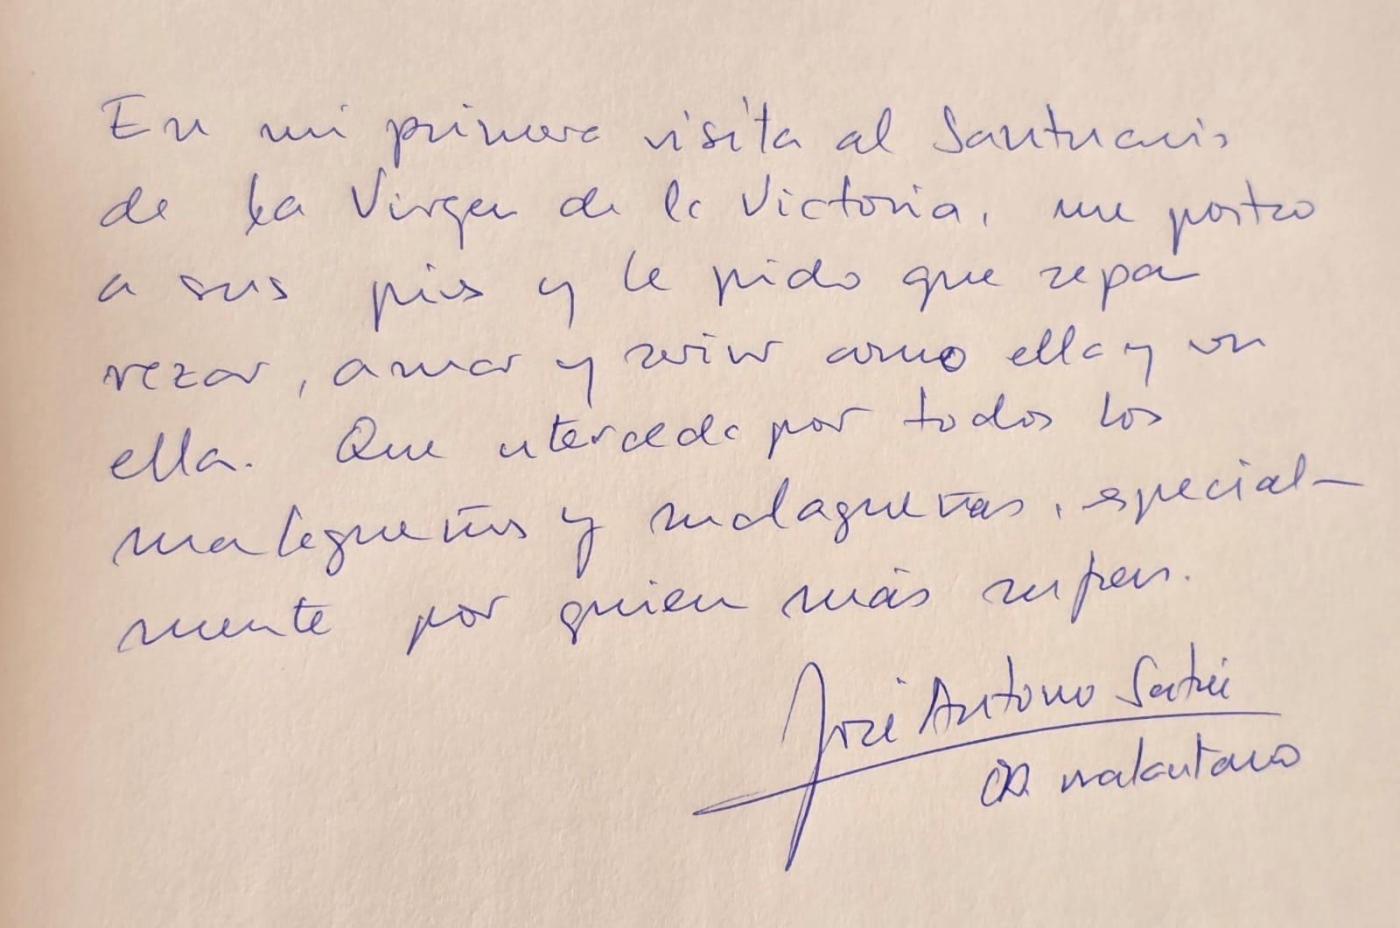 En mi primera visita al Santuario
de la Virgen de la Victoria, me postro
a sus pies y le pido que sepa
rezar, amar y servir como ella y en
ella. Que interceda por todos los
malagueños y malagueñas, especial-
mente por quien más sufren.
José Antonio Satué